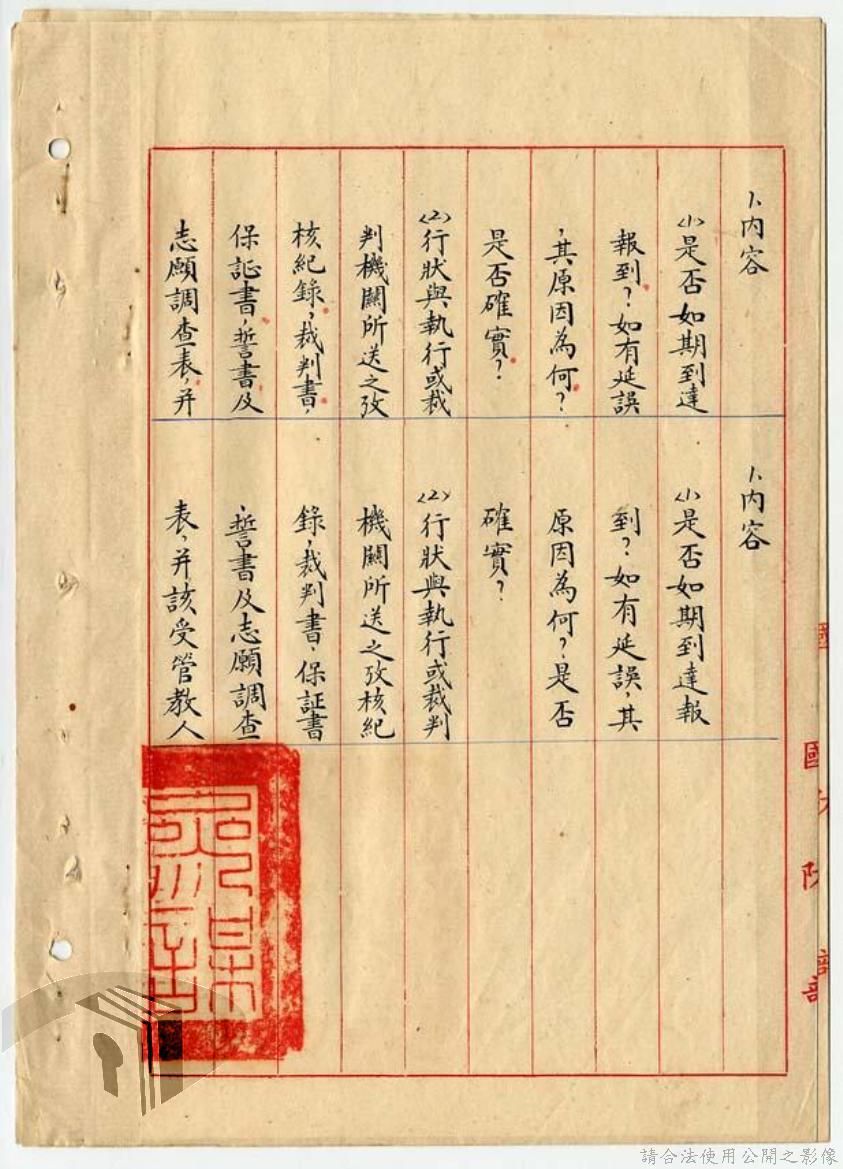 1、內容
(1)是否如期到達
報到？如有延誤
，其原因為何？
是否確實？
(2)行狀與執行或裁
判機關所送之攷
核紀錄，裁判書，
保証書，誓書及
志願調查表，并
1、內容
(1)是否如期到達報
到？如有延誤，其
原因為何？是否
確實？
(2)行狀與執行或裁判
機關所送之攷核紀
錄，裁判書，保証書
，誓書及志願調查
表，并該受管教人
國防部
請合法使用公開之影像